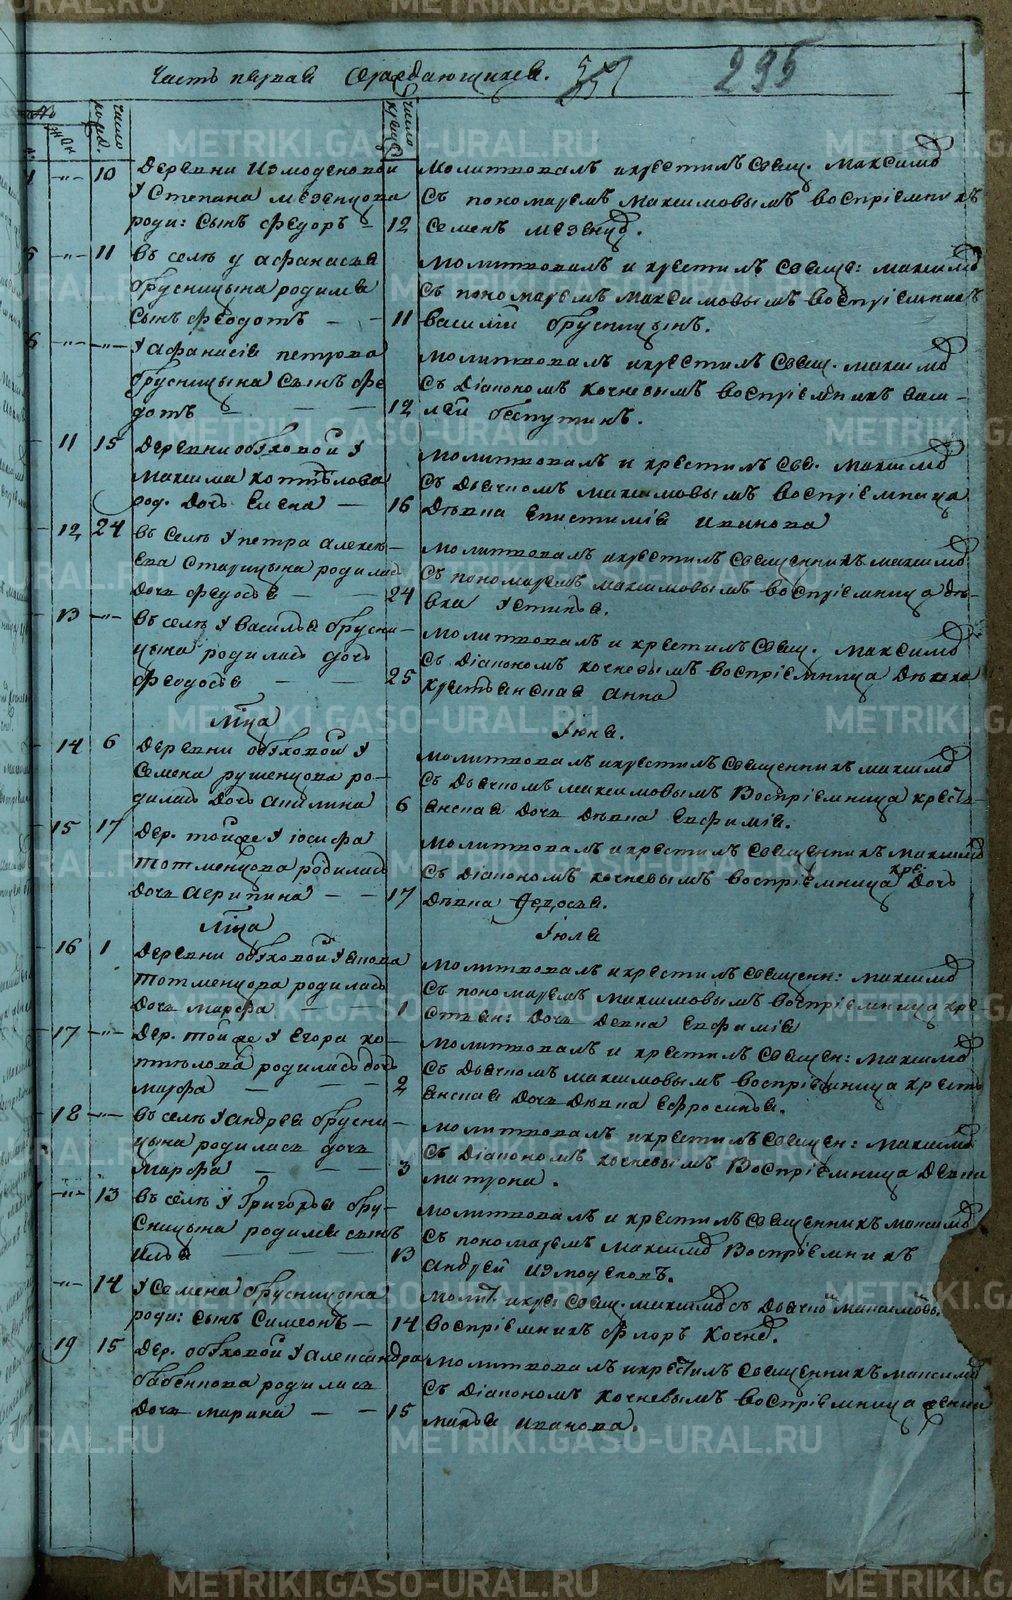 Часть первая о раждающихся.
295
число рожд.
число крещ.
10 Деревни Измоденовой
У Степана Мезенцова
роди: сынъ Феодоръ – 12
Молитвовалъ и крестилъ свящ. Максимо
съ пономаремъ Максимовымъ воспріемникъ
Семенъ Мезенцо.
11 въ селѣ у Афанасья
Брусницына родился
сынъ Феодотъ – – 11
Молитвовалъ и крестилъ свяще: Максимо
съ пономаремъ Максимовымъ воспріемникъ
Василій Брусницынъ.
У Афанасія Петрова
Брусницына сынъ Фе
дотъ – – – 12
Молитвовалъ и крестилъ свящ. Максимо
съ діакономъ Кочневымъ воспріемникъ Васи-
лей Беспутинъ.
11 15 Деревни Обуховой у
Максима Коптѣлова
род. дочь Елена – 16
Молитвовалъ и крестилъ свя. Максимо
съ дьячкомъ Максимовымъ воспріемница
дѣвка Епистимія Иванова
12 24 въ селѣ у Петра Алексѣ-
ева Старицына родилась
дочь Феодосья – – 24
Молитвовалъ и крестилъ священникъ Максимо
съ пономаремъ Максимовымъ воспріемница дѣ-
вка Устинья.
13 въ селѣ у Василья Брусни-
цына родилась дочь
Феодосія – – 25
Молитвовалъ и крестилъ свящ. Максимо
съ діакономъ Кочневымъ воспріемница дѣвка
крестьянская Анна
Мца Іюня.
14 6 Деревни Обуховой у
Семена Рушенцова ро-
дилась дочь Акилина 6
Молитвовалъ и крестилъ священникъ Максимо
съ дьячкомъ Максимовымъ воспріемница крестья-
нская дочь дѣвка Евфимія.
15 17 Дер. тойже у Іосифа
Тотменцова родилась
дочь Агрипина – – 17
Молитвовалъ и крестилъ священникъ Максимо
съ діакономъ Кочневымъ воспріемница кре: дочь
дѣвка Федосья.
Мца Іюля
16 1 Деревни Обуховой у Якова
Тотменцова родилась
дочь Марфа – – 1
Молитвовалъ и крестилъ священ: Максимо
съ пономаремъ Максимовымъ воспріемница кре
стьян: дочь девка Евфимія
17 Дер. тойже у Егора Ко-
птѣлова родилась дочь
Марфа – – 2
Молитвовалъ и крестилъ священ: Максимо
съ дьячкомъ Максимовымъ воспріемница кресть
янская дочь дѣвка Ефросинья.
18 въ селѣ у Андрея Брусни-
цына родилась дочь
Марфа – – – 3
Молитвовалъ и крестилъ священ: Максимо
съ діакономъ Кочневымъ воспріемница девка
Матрона.
13 въ селѣ у Григорья Бру-
сницына родился сынъ
Илья – – 13
Молитвовалъ и крестилъ священникъ Максимо
съ пономаремъ Максимо воспріемникъ
Андрей Измоденовъ.
14 У Семена Брусницына
роди: сынъ Симеонъ – 14
Молит. и кре: свящ. Максимо съ дьячко Максимовы.
воспріемникъ Флоръ Кочне.
19 15 Дер. Обуховой у Александра
Бабеннова родилась
дочь Марина – – 15
Молитвовалъ и крестилъ священникъ Максимо
съ діакономъ Кочневымъ воспріемница
Марья Иванова.
METRIKI.GASO-URAL.RU